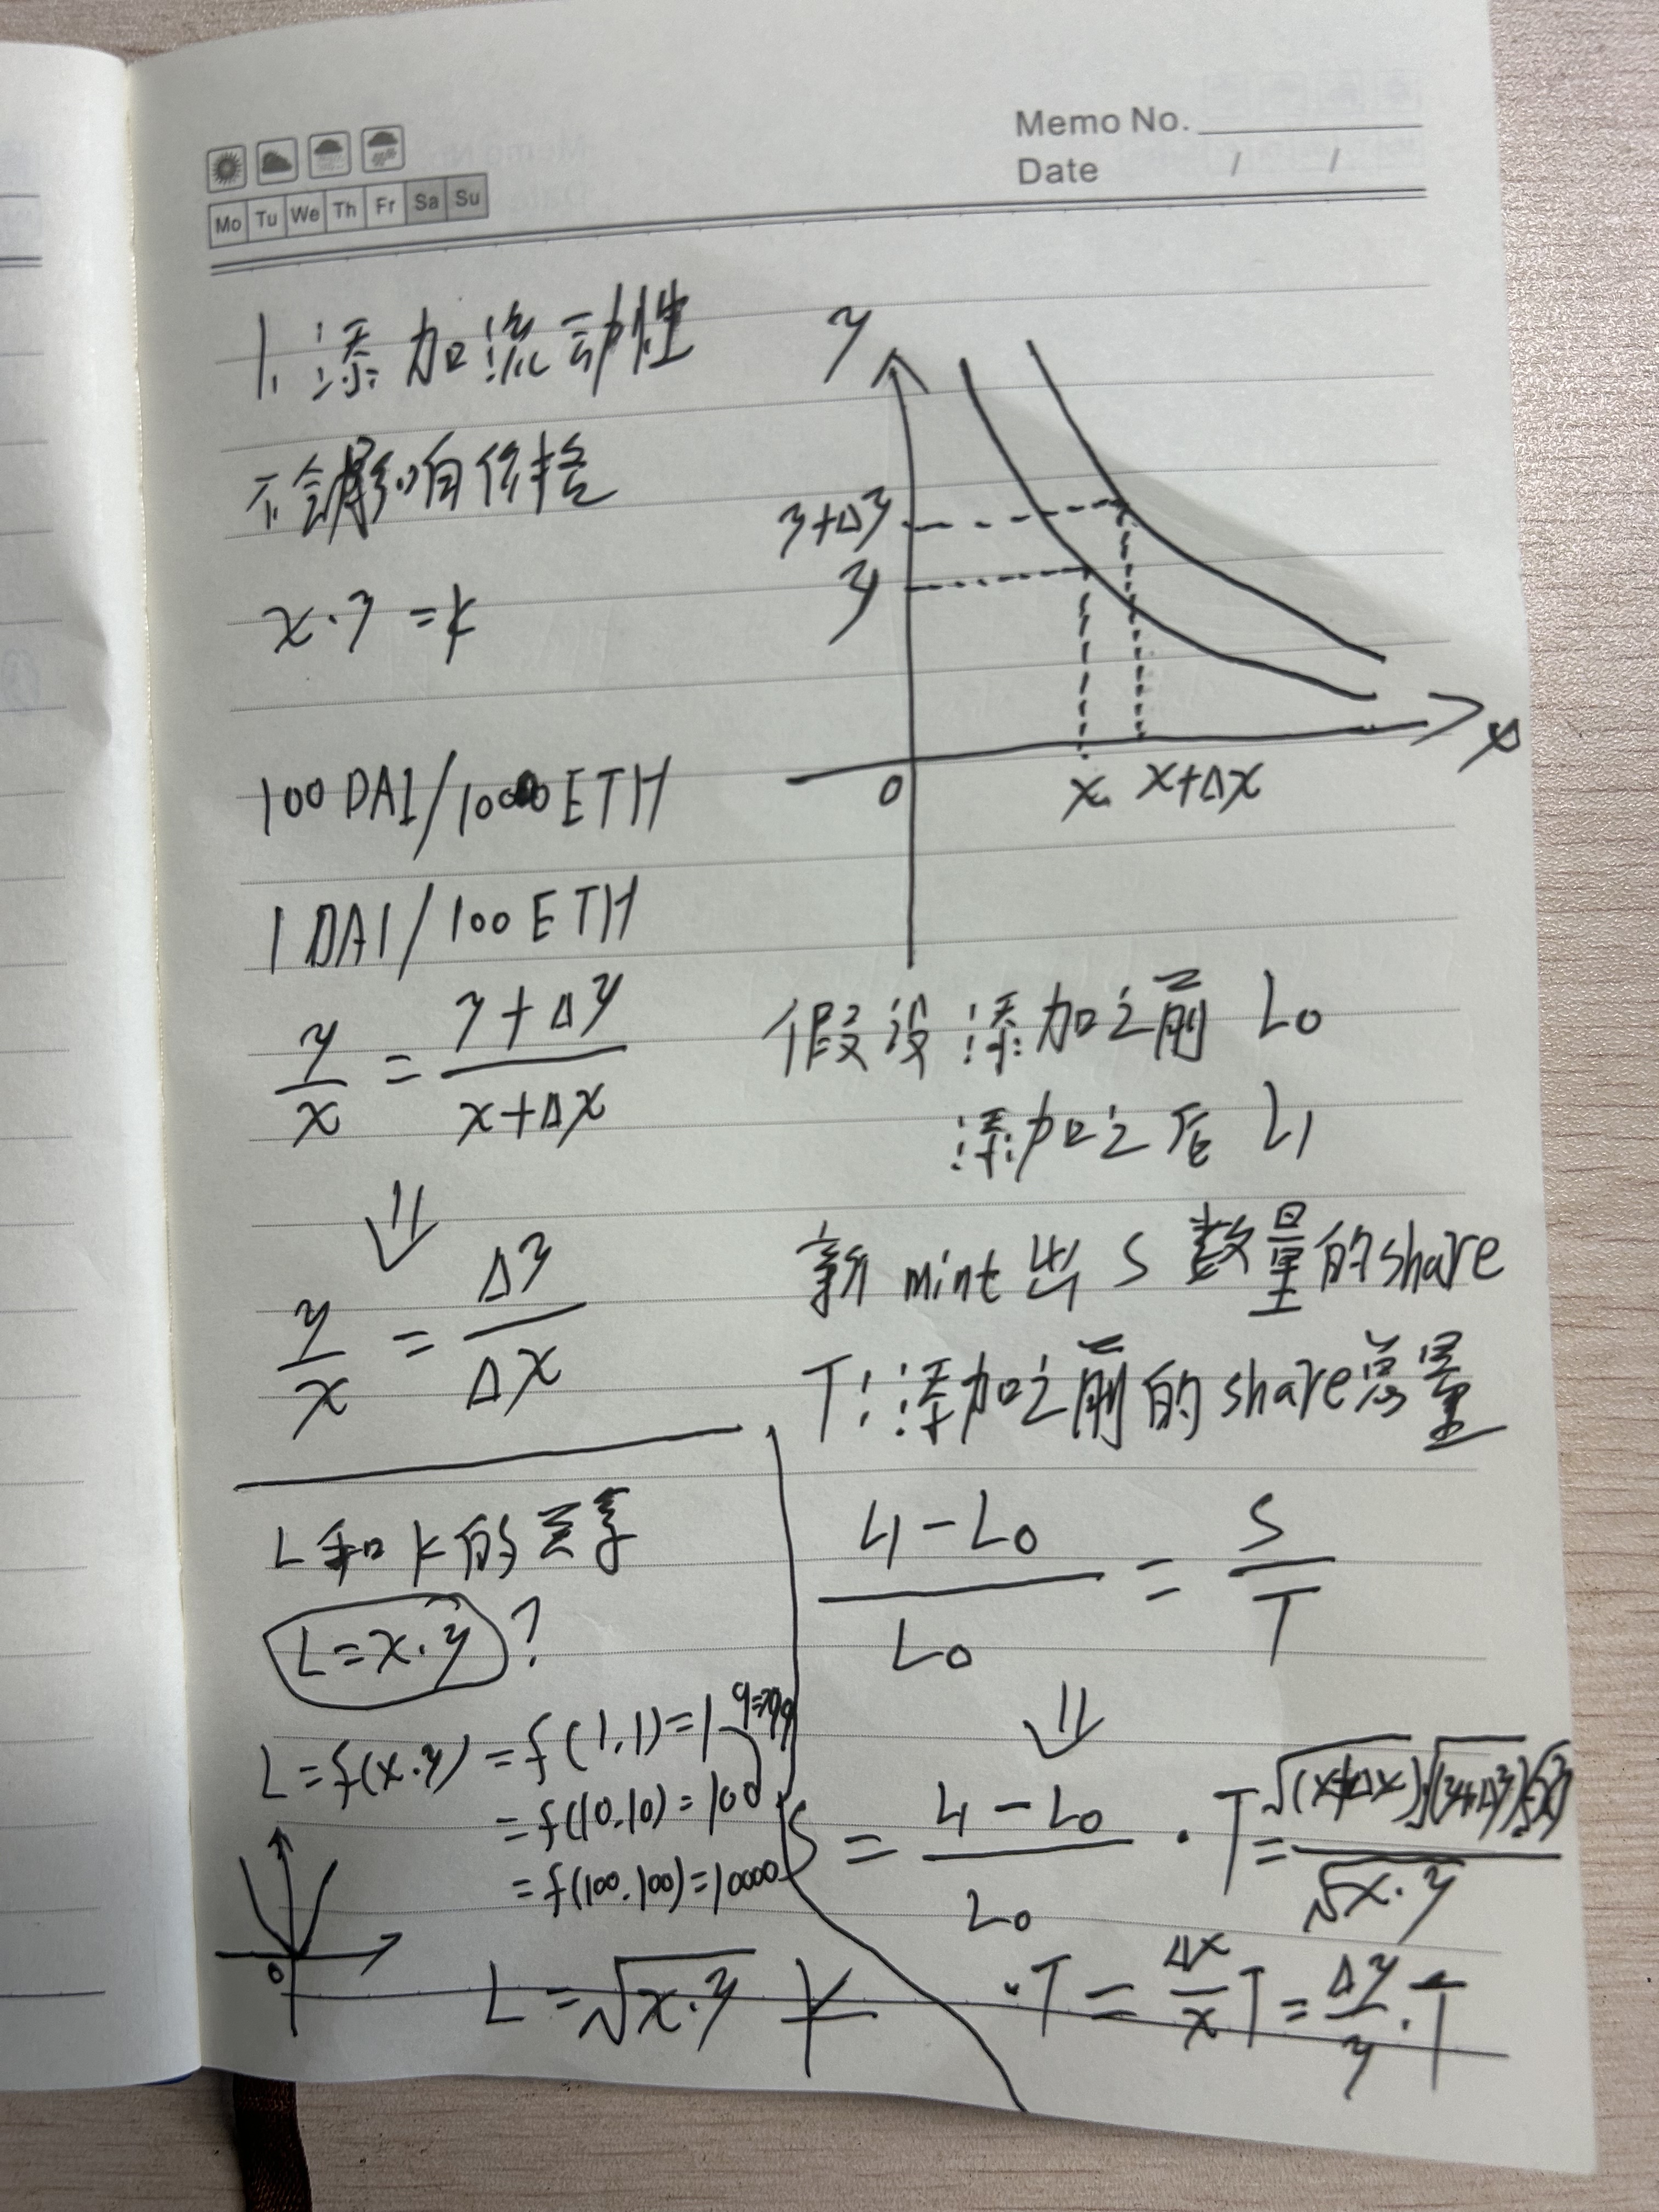 Memo No.
Date / /
Mo Tu We Th Fr Sa Su
1. 添加流动性
不会影响价格
x·y=k
100 DAI/10000 ETH
1 DAI/100 ETH
y/x = (y+Δy)/(x+Δx)
⇓
y/x = Δy/Δx
y
y+Δy
y
0
x
x+Δx
x
假设添加之前 L0
添加之后 L1
新mint出 S 数量的share
T:添加之前的share总量
(L1-L0)/L0 = S/T
⇓
S = (L1-L0)/L0 · T = (√(x+Δx)·√(y+Δy)-√xy)/√x·y
·T = Δx/x T = Δy/y·T
L和k的差异
L=x·y ?
L=f(x.y) = f(1.1)=1
=f(10.10)=100
=f(100.100)=10000
0
L=√x·y